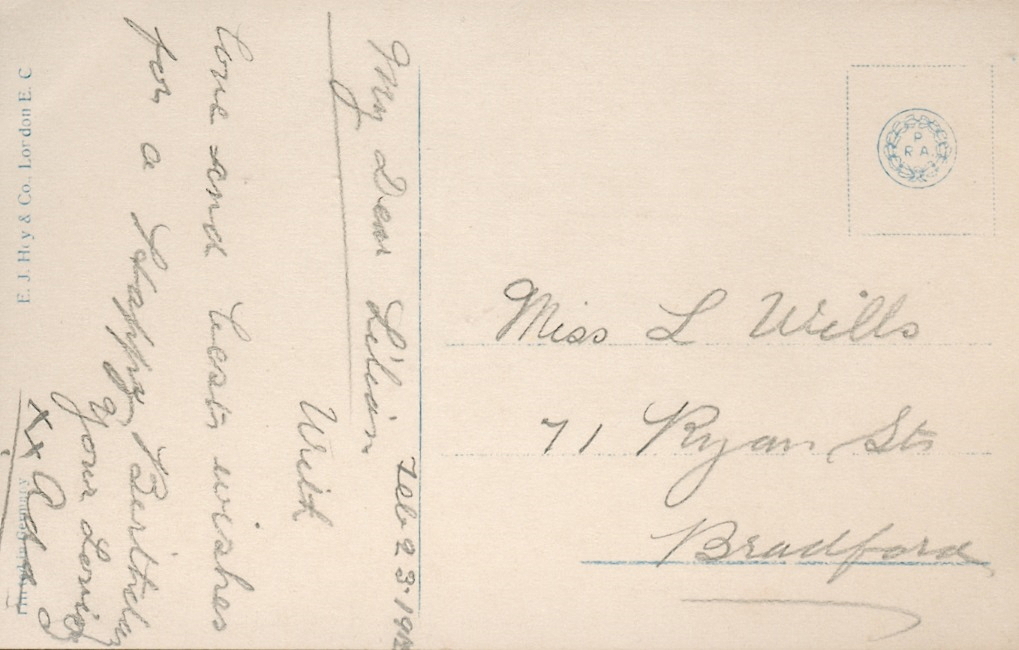 Feb 23 19
My Dear Lilian
With
Love and best wishes
for a Happy Birthday
Your Loving
xx Ada
E. J. Hey & Co., London E. C
Printed in Germany
P
R A
Miss L Wills
71 Ryan St
Bradford